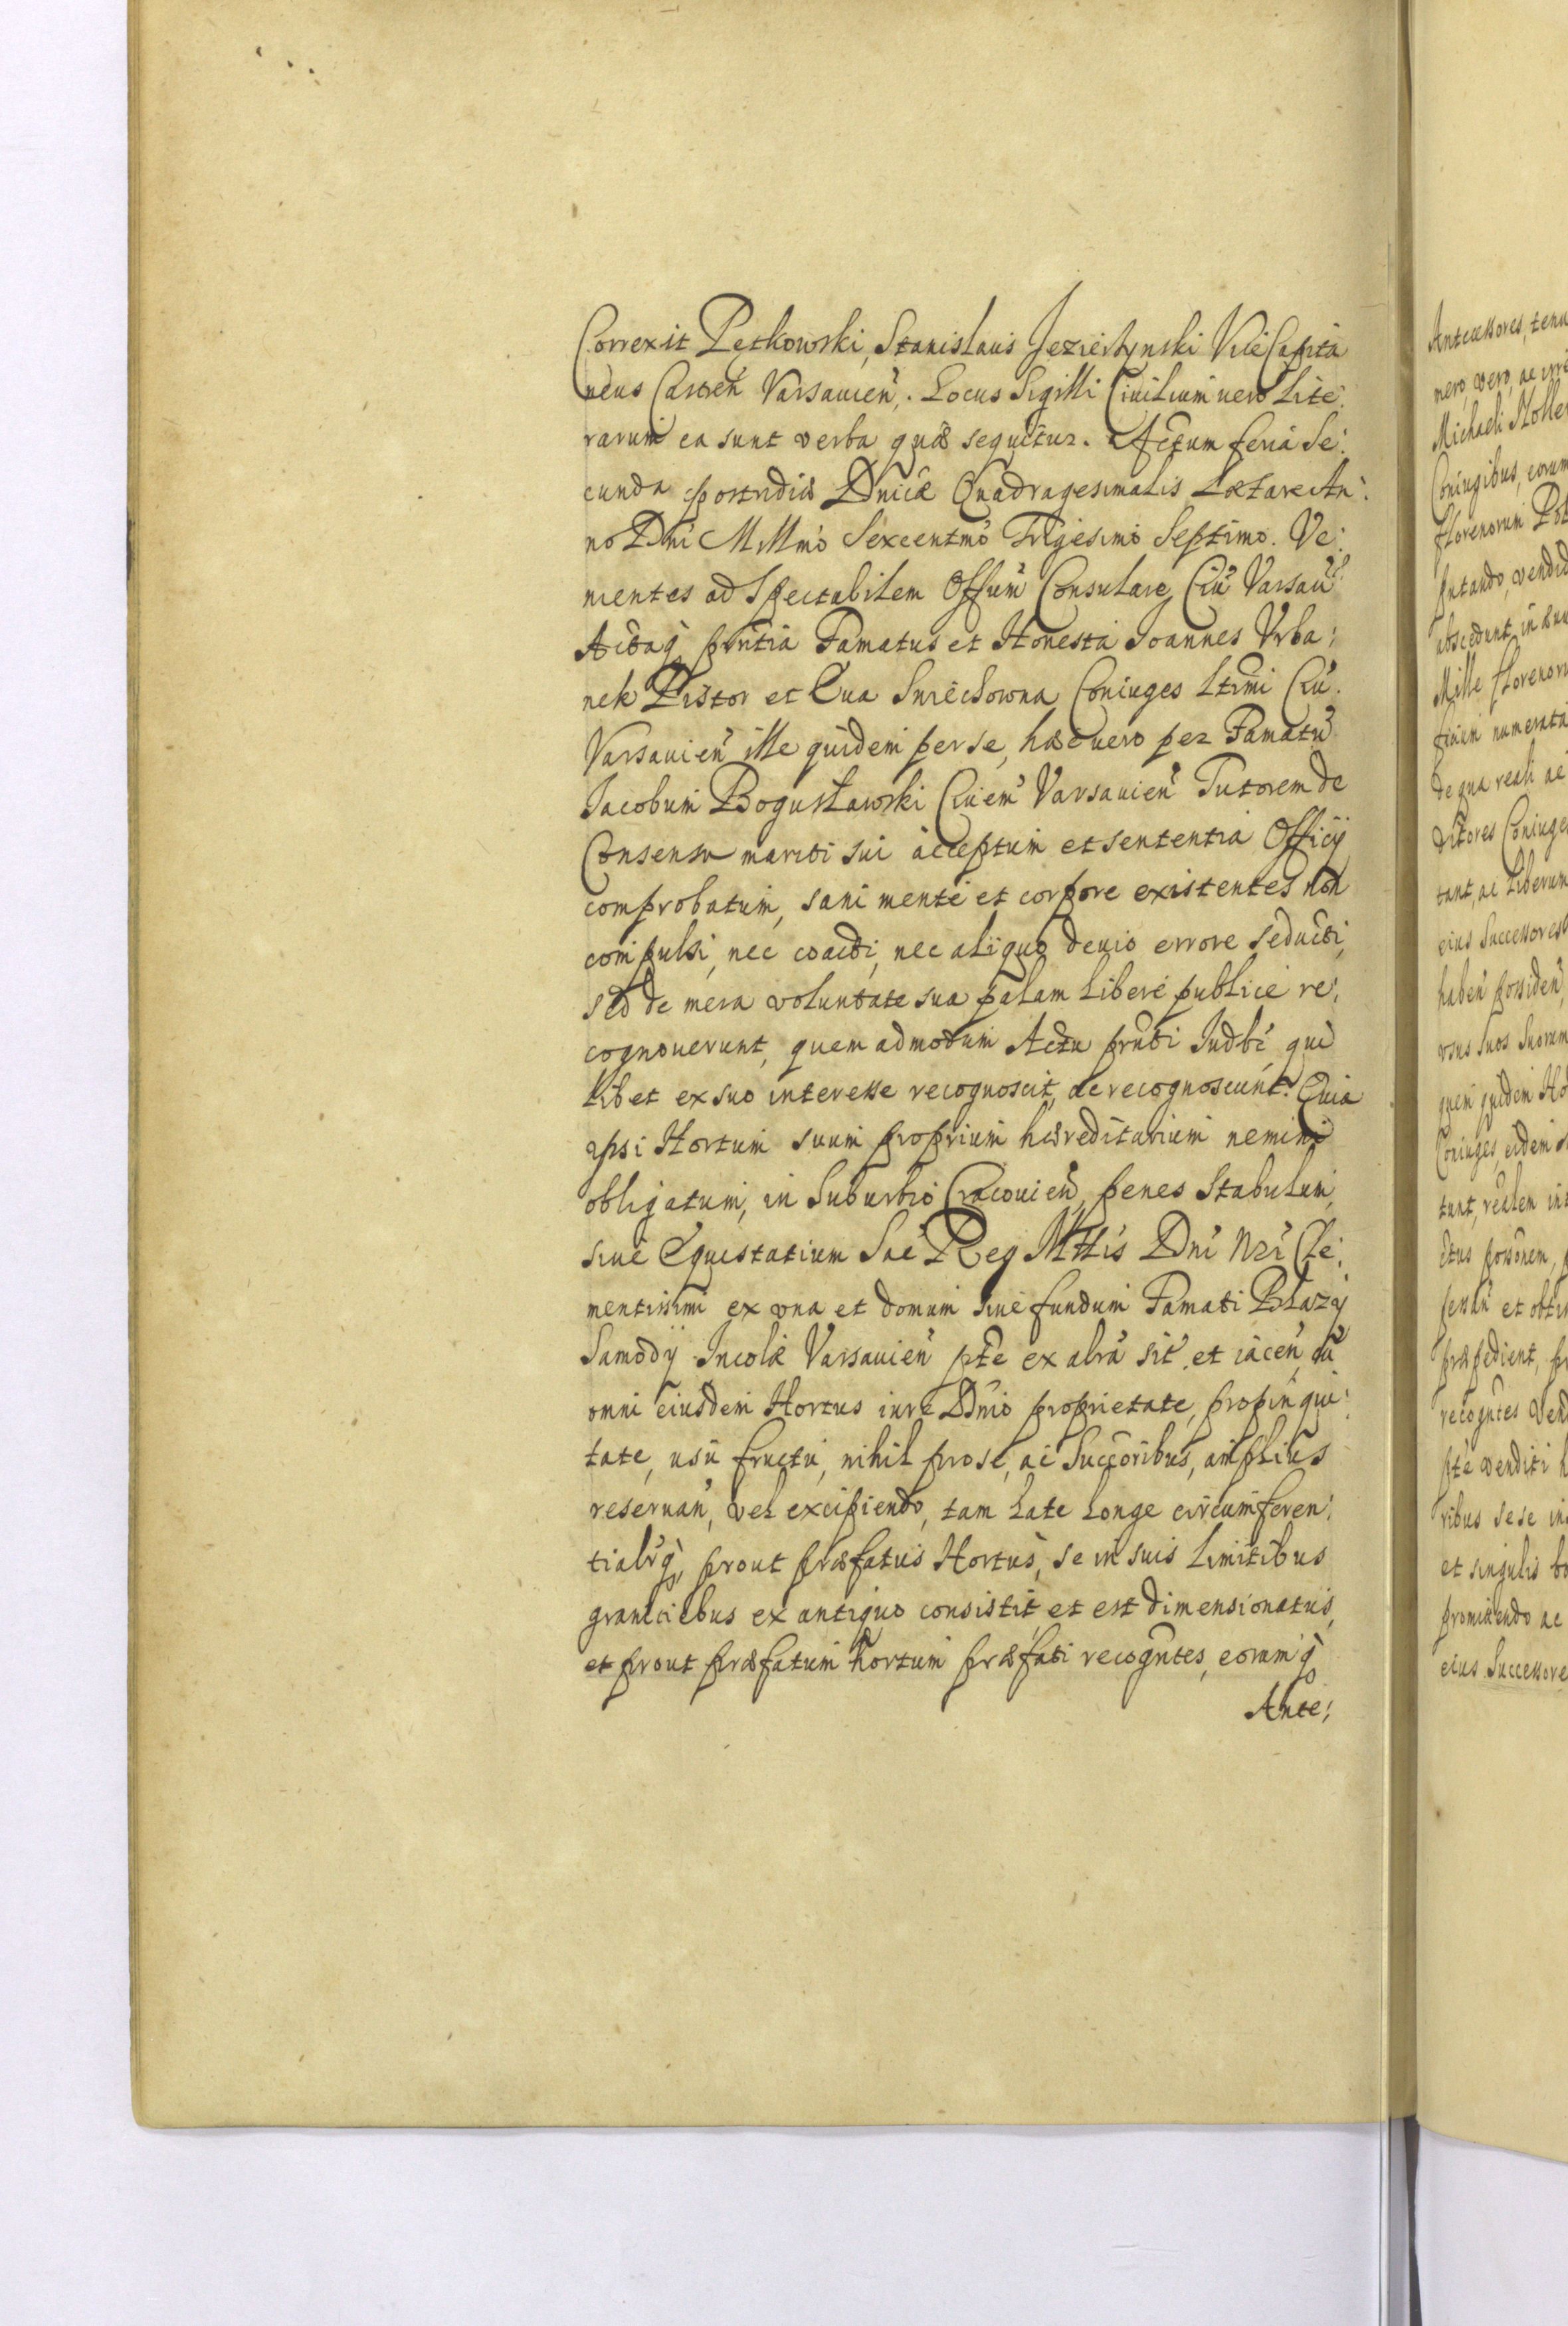 Correxit Pętkowski, Stanislaus Jezierkynski ViceCapita
neus Castreñ Varsavieñ. Locus Sigilli Civilium vero Lite:
rarum ea sunt verba quæ sequitur. Actum feria Se:
cunda postridie Dnicæ Quadragesimalis Lætare An:
no Dni Millmo Sexcentmo Trigesimo Septimo. Ve:
nientes ad Spectabilem Offum Consulare Ciu Varsau
Actaq pntia Famatus et Honesta Joannes Vrba:
nek Pistor et Eua Smiechowna Coniuges Ltimi Ciu.
Varsavieñ ille quidem per se, hæc vero per Famatu
Jacobum Bogusławski Ciuem Varsavieñ Tutorem de
Consensu mariti sui acceptum et sententia Officij
comprobatum, sani mente et corpore existentes non
compulsi, nec coacti, nec aliquo devio errore seducti,
sed de mera voluntate sua palam libere publice re:
cognoverunt, quem admodum Actu pnti Judbi qui
libet ex suo interesse recognoscit, ac recognoscunt. Quia
ipsi Hortum suum proprium hæreditarium nemini
obligatum, in Suburbio Cracovieñ, penes Stabulum,
sive Equistatium Sae Reg Mttis Dni Nri Cle:
mentissimi ex vna et domum sive fundum Famati Błazij
Samodij Incolæ Varsavieñ pte ex altra sit. et iaceñ cu
omni eiusdem Hortus iure Dnio proprietate, propinqui:
tate, usu fructu, nihil pro se, ac Succoribus, amplius
reservañ, vel excipiendo, tam late longe circumferen:
tialrq, prout præfatus Hortus, se in suis limitibus
graniciebus ex antiquo consistit, et est dimensionatus,
et prout præfatum hortum præfati recogntes, eorumq
Ante:
Antecessores, tenu
nero, vero, ac irre
Michaeli
Coniugibus, eorum
florenorum Pol
putando, vendid
abscedunt, in
Mille florenoru
numerata
de qua reali ac
ditores Coniuge
tant, ac liberum
eius Successores
habeñ possideñ,
vsus suos suorum
quem quidem Ho
Coniuges, eidem
tunt, realem int
et obtin
præpedient, pr
recogntes Vend
pte venditi h
ribus sese in
et singulis bo
promittendo ac
eius Successore